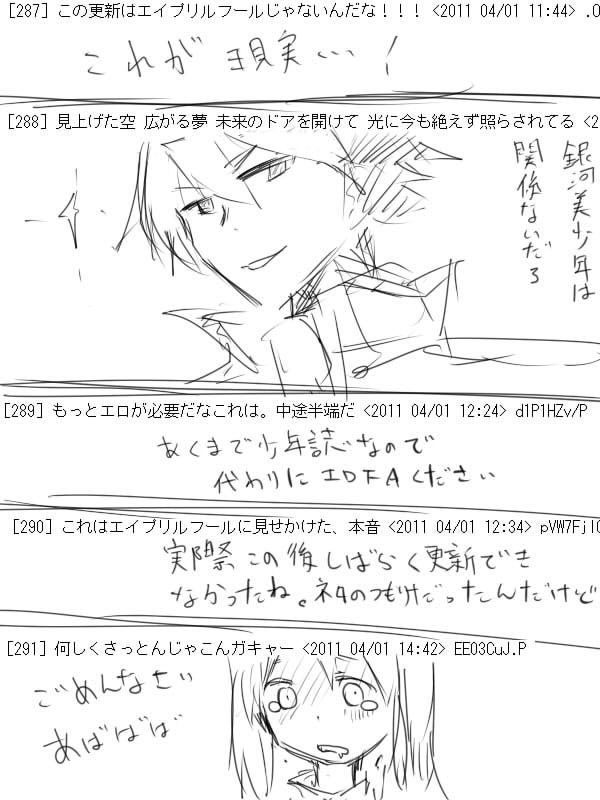 [287] この更新はエイプリルフールじゃないんだな！！！ <2011 04/01 11:44> .O
これが現実…！
[288] 見上げた空 広がる夢 未来のドアを開けて 光に今も絶えず照らされてる <2
銀河美少年は
関係ないだろ
[289] もっとエロが必要だなこれは。中途半端だ <2011 04/01 12:24> d1P1HZv/P
あくまで少年誌なので
代わりにエロFAください
[290] これはエイプリルフールに見せかけた、本音 <2011 04/01 12:34> pVW7FjI
実際この後しばらく更新でき
なかったね。ネタのつもりだったんだけど
[291] 何しくさっとんじゃこんガキャー <2011 04/01 14:42> EE03CuJ.P
ごめんなさい
あばばば